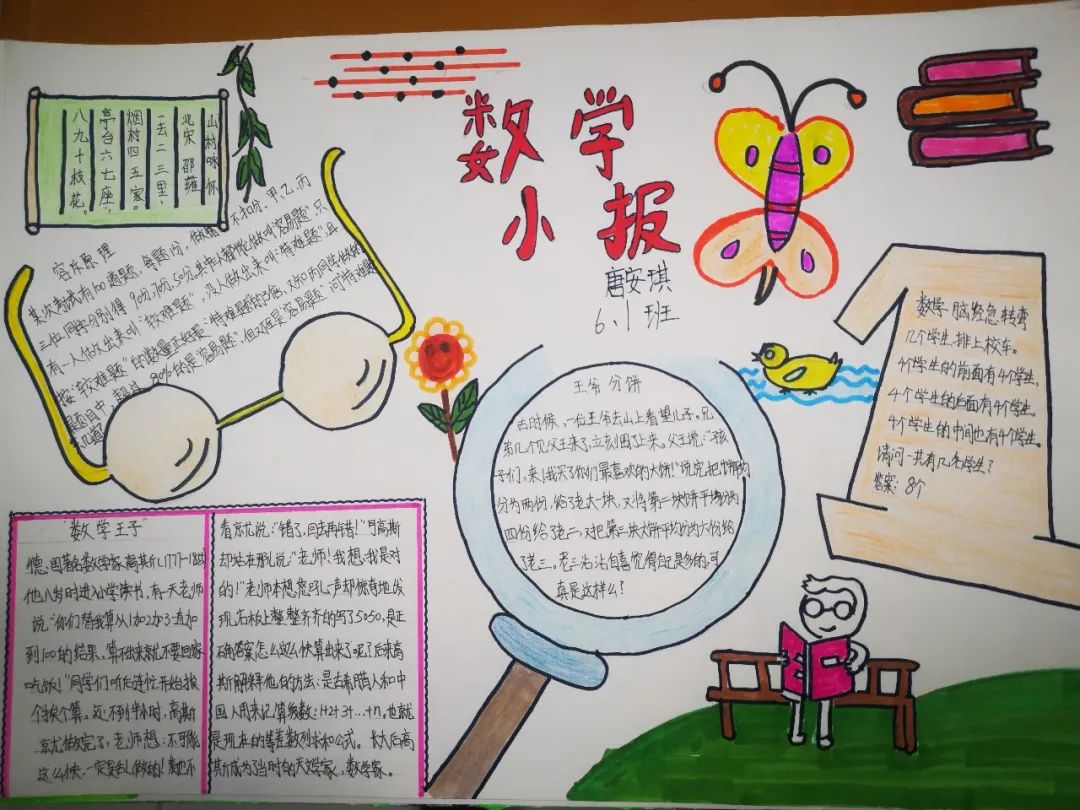 数学
小报
唐安琪
6.1班
山村咏怀
北宋 邵雍
一去二三里，
烟村四五家。
亭台六七座，
八九十枝花。
容斥原理
某次考试有100道题，每题1分，做错不扣分，甲、乙、丙
三位同学分别得90分,70分,50分,其中人都做出来叫"容易题"，只
有一人做出来叫"较难题"，没人做出来叫"特难题"，且
"较难题"的数量正好是"特难题"的3倍，又知丙同学做的
题目中，超过80%的是"容易题"，但又不全是容易题，问特难题
有几道
王爷 分饼
古时候，一位王爷去山上看望儿子。兄
弟几个见父王来了,立刻围了上来。父王说："孩
子们，来!我买了你们最喜欢的大饼!"说完,把大饼平均
分为两份，给了老大一块，又将第二块饼平均分为
四份给了老二，又把第三块大饼平均分为六份给
了老三。老三沾沾自喜觉得自己是多的。可
真是这样么?
数学脑筋急转弯
几个学生排上校车。
4个学生的前面有4个学生，
4个学生的后面有4个学生。
4个学生的中间也有4个学生。
请问一共有几个学生?
答案：8个
"数学王子"
德国著名数学家,高斯(1777-1855)
他八岁时进入小学读书，有一天老师
说："你们替我算从1加2加3一直加
到100的结果，算不出来就不要回家
吃饭!"同学们听后连忙开始挨
个挨个算。还不到半小时，高斯
就做完了，老师想：不可能
这么快，一定是乱做的！看也不
看就说："错了，回去再算!"可高斯
却站在那说："老师!我想,我是对
的!"老师本想怒吼一声却惊奇地发
现,石板上整整齐齐的写了5050,是正
确答案怎么这么快算出来了呢?后来高
斯解释他的方法：是古希腊人和中
国人用来计算级数：1+2+3+…+n,也就
是现在的等差数列求和公式。长大后高
斯成为了当时的天文学家，数学家。